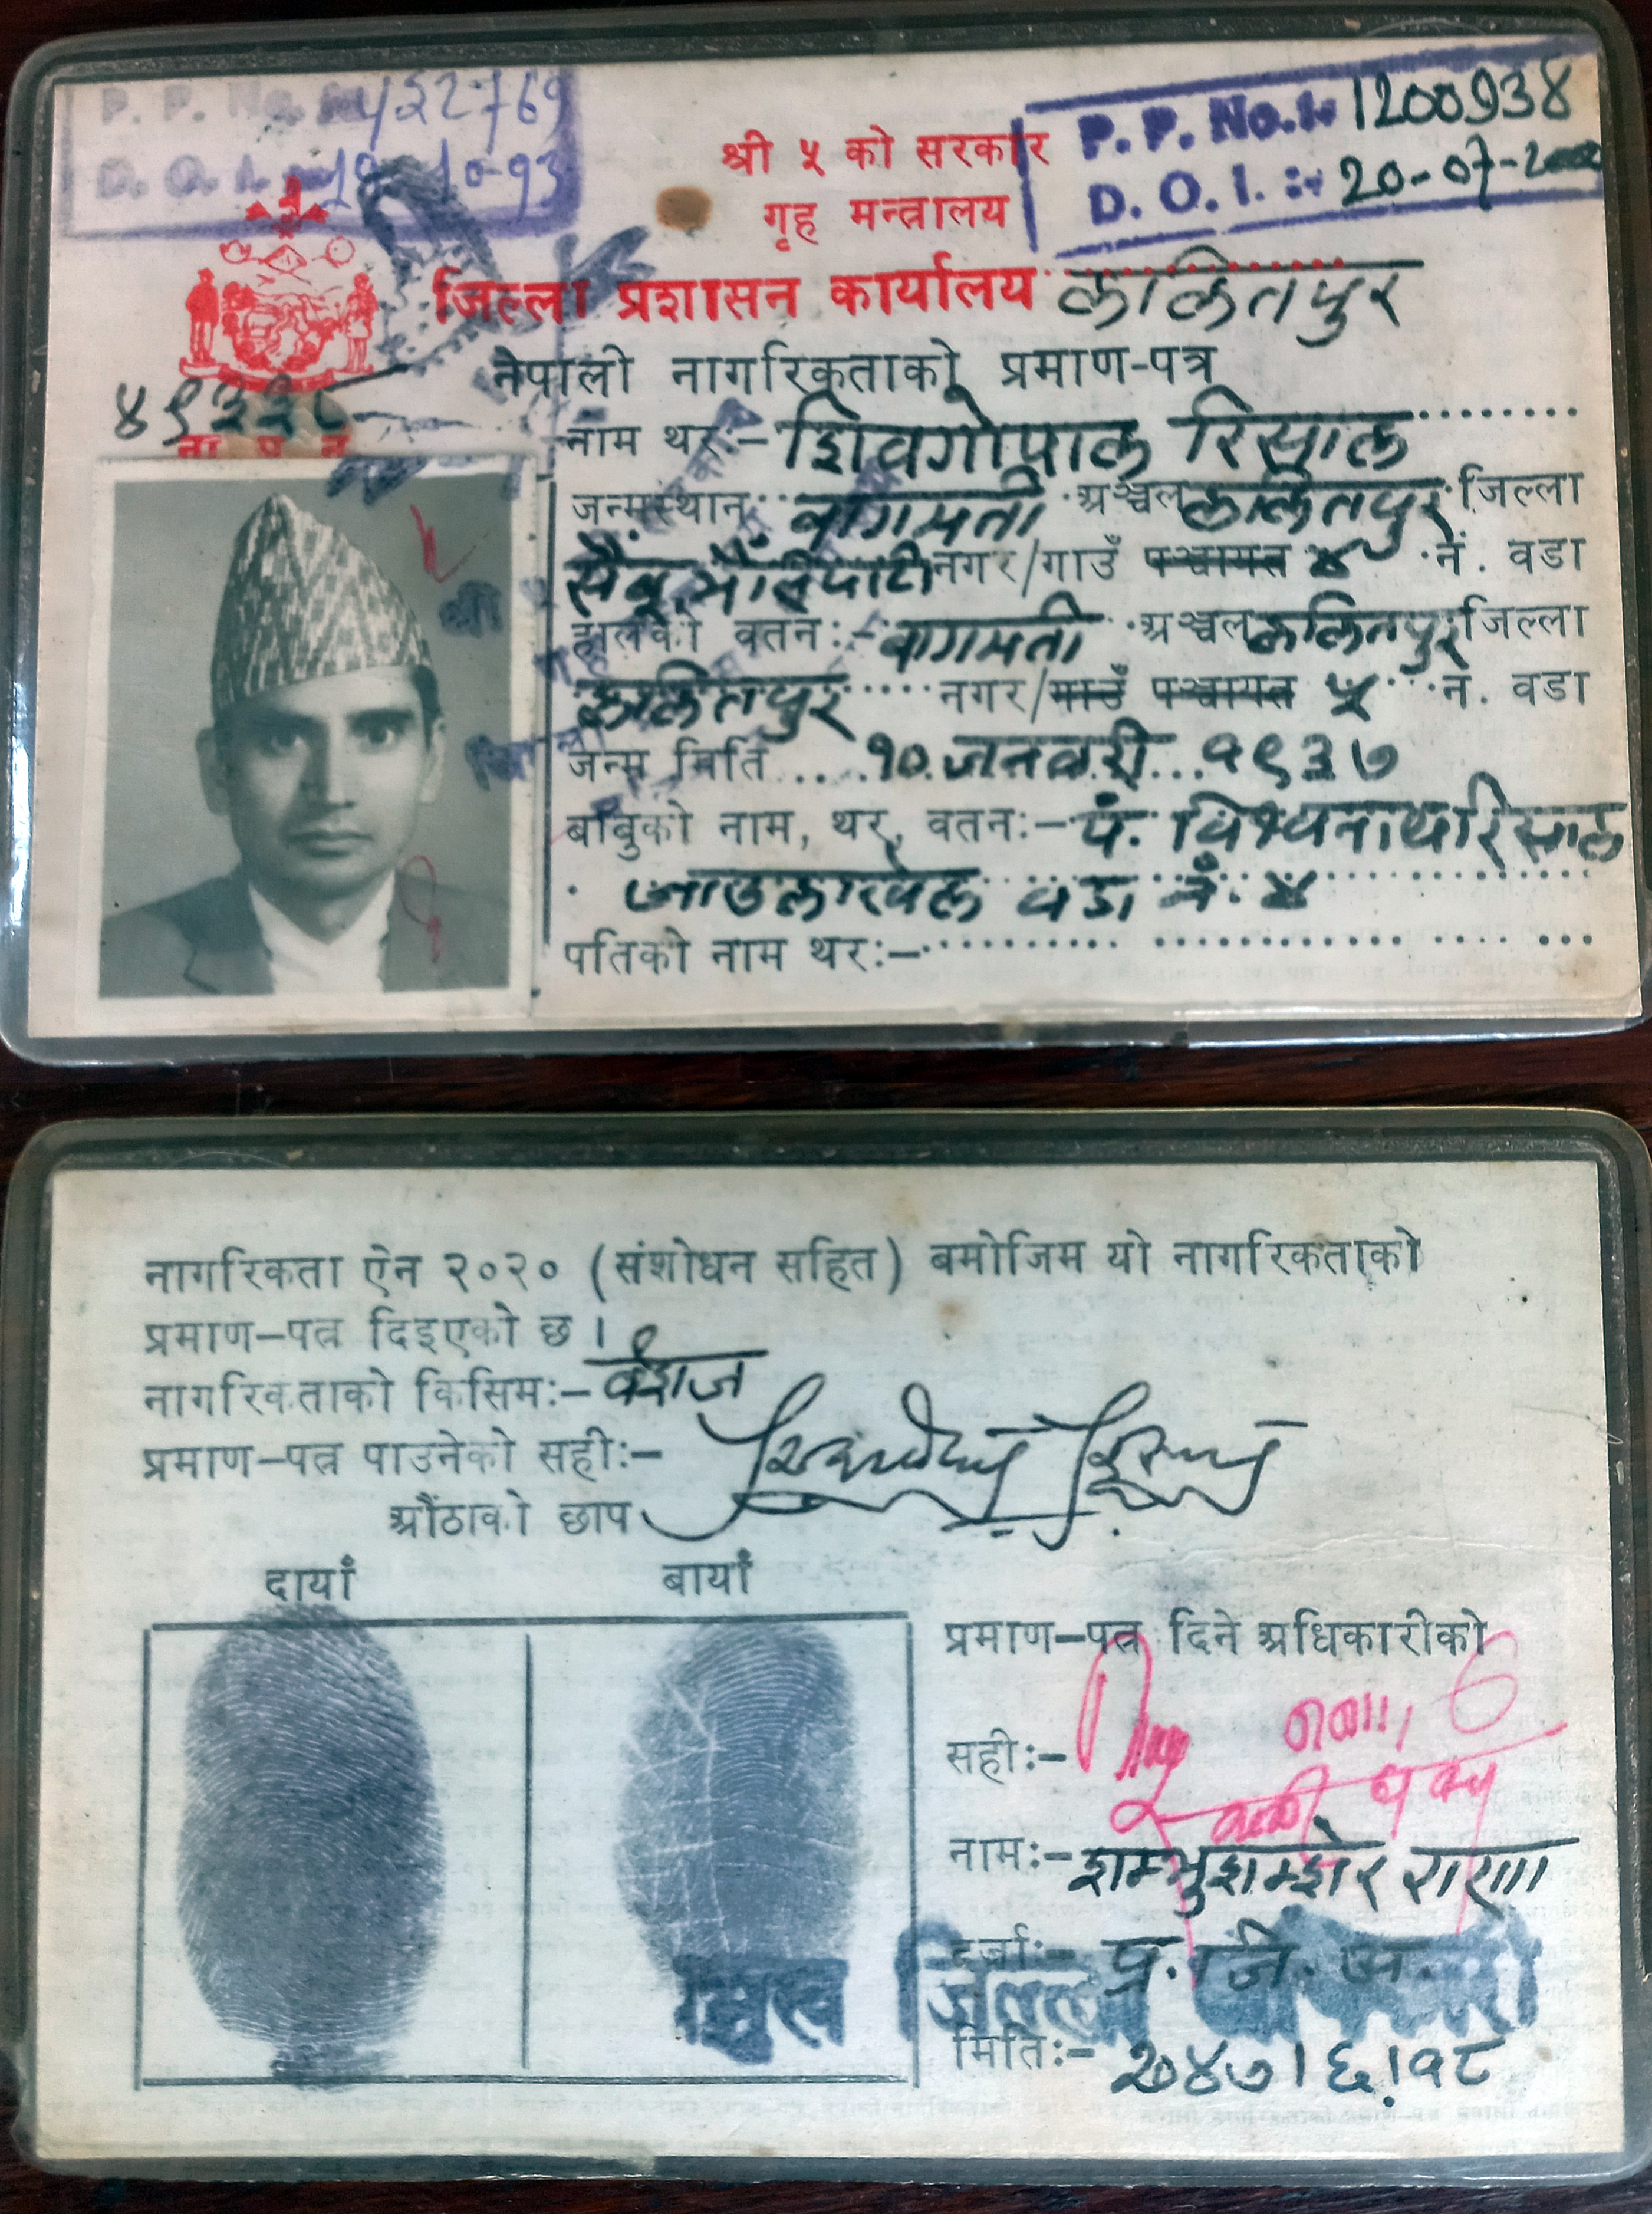 P. P. No. 432769
D. O. I. 19-10-93
P. P. No. :- 1200938
D. O. I. :- 20-07-2000
श्री ५ को सरकार
गृह मन्त्रालय
जिल्ला प्रशासन कार्यालय ललितपुर
नेपाली नागरिकताको प्रमाण-पत्र
ना प न
नाम थर:- शिवगोपाल रिसाल
जन्मस्थान: वागमती अञ्चल ललितपुर जिल्ला
सैंबु नगर/गाउँ पञ्चायत ४ नं. वडा
हालको वतन:- वागमती अञ्चल ललितपुर जिल्ला
ललितपुर नगर/गाउँ पञ्चायत ५ नं. वडा
जन्म मिति १० जनवरी १९३७
बाबुको नाम, थर, वतन:- पं. विश्वनाथ रिसाल
जाउलाखेल वडा नं. ४
पतिको नाम थर:-
नागरिकता ऐन २०२० (संशोधन सहित) बमोजिम यो नागरिकताको
प्रमाण-पत्र दिइएको छ ।
नागरिकताको किसिम:- वंशज
प्रमाण-पत्र पाउनेको सही:-
औंठाको छाप
दायाँ बायाँ
प्रमाण-पत्र दिने अधिकारीको
सही:-
नाम:- शम्भुशम्शेर राणा
दर्जा:- प्र. जि. अ.
जिल्ला
मिति:- २०४७।६।१८